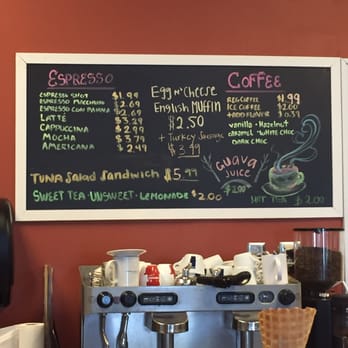 ESPRESSO
ESPRESSO SHOT $1.99
ESPRESSO MACCHIATO $2.69
ESPRESSO CON PANNA $2.69
LATTÉ $3.29
CAPPUCCINO $2.99
MOCHA $3.79
AMERICANA $2.49
EGG N' CHEESE
ENGLISH MUFFIN
$2.50
+ Turkey Sausage
$3.49
COFFEE
REG COFFEE $1.99
ICE COFFEE $2.00
+ADD FLAVOR $0.39
vanilla · Hazelnut
caramel · WHITE CHOC
DARK CHOC
GUAVA
JUICE
$2.00
TUNA SALAD SANDWICH $5.99
SWEET TEA · UNSWEET · LEMONADE $2.00
HOT TEA $2.00